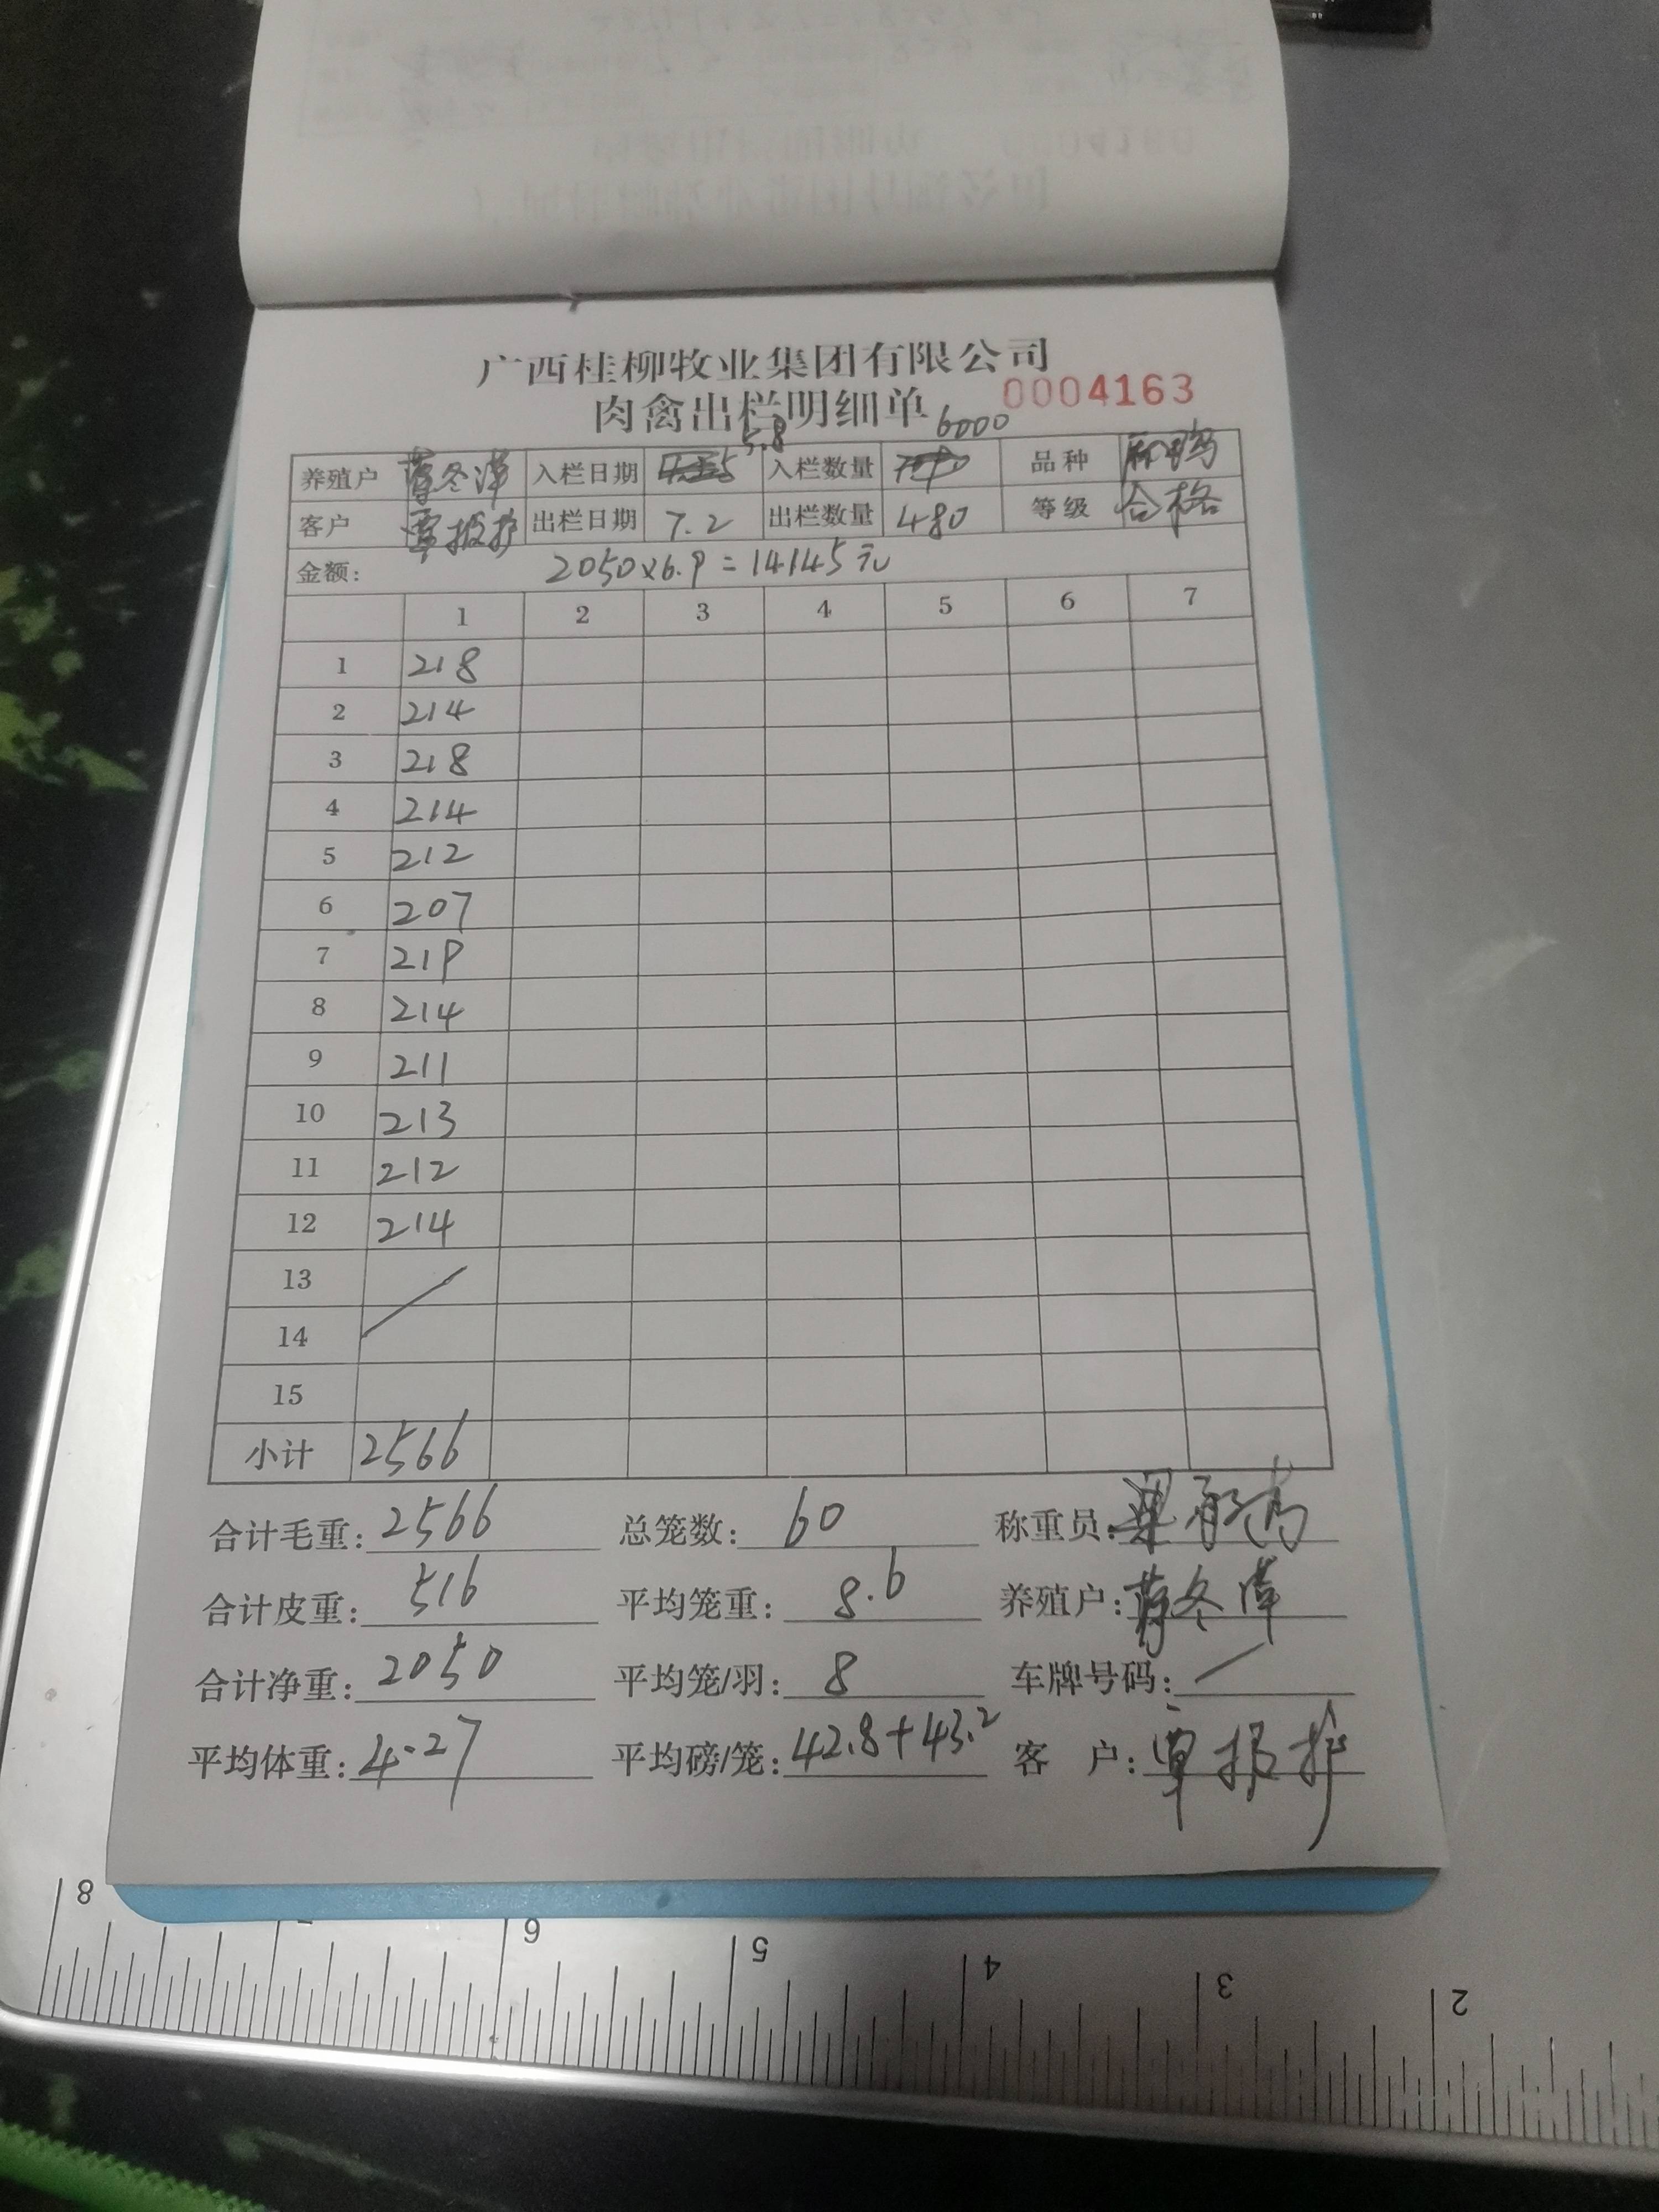 广西桂柳牧业集团有限公司
肉禽出栏明细单 0004163
5.8 6000
养殖户 冬 入栏日期 入栏数量 品种 麻鸭
客户 覃报护 出栏日期 7.2 出栏数量 480 等级 合格
金额: 2050×6.9=14145元
1 2 3 4 5 6 7
1 218
2 214
3 218
4 214
5 212
6 207
7 219
8 214
9 211
10 213
11 212
12 214
13
14
15
小计 2566
合计毛重: 2566 总笼数: 60 称重员:
合计皮重: 516 平均笼重: 8.6 养殖户: 冬
合计净重: 2050 平均笼/羽: 8 车牌号码: /
平均体重: 4.27 平均磅/笼: 42.8+43.2 客 户: 覃报护
8 7 6 5 4 3 2